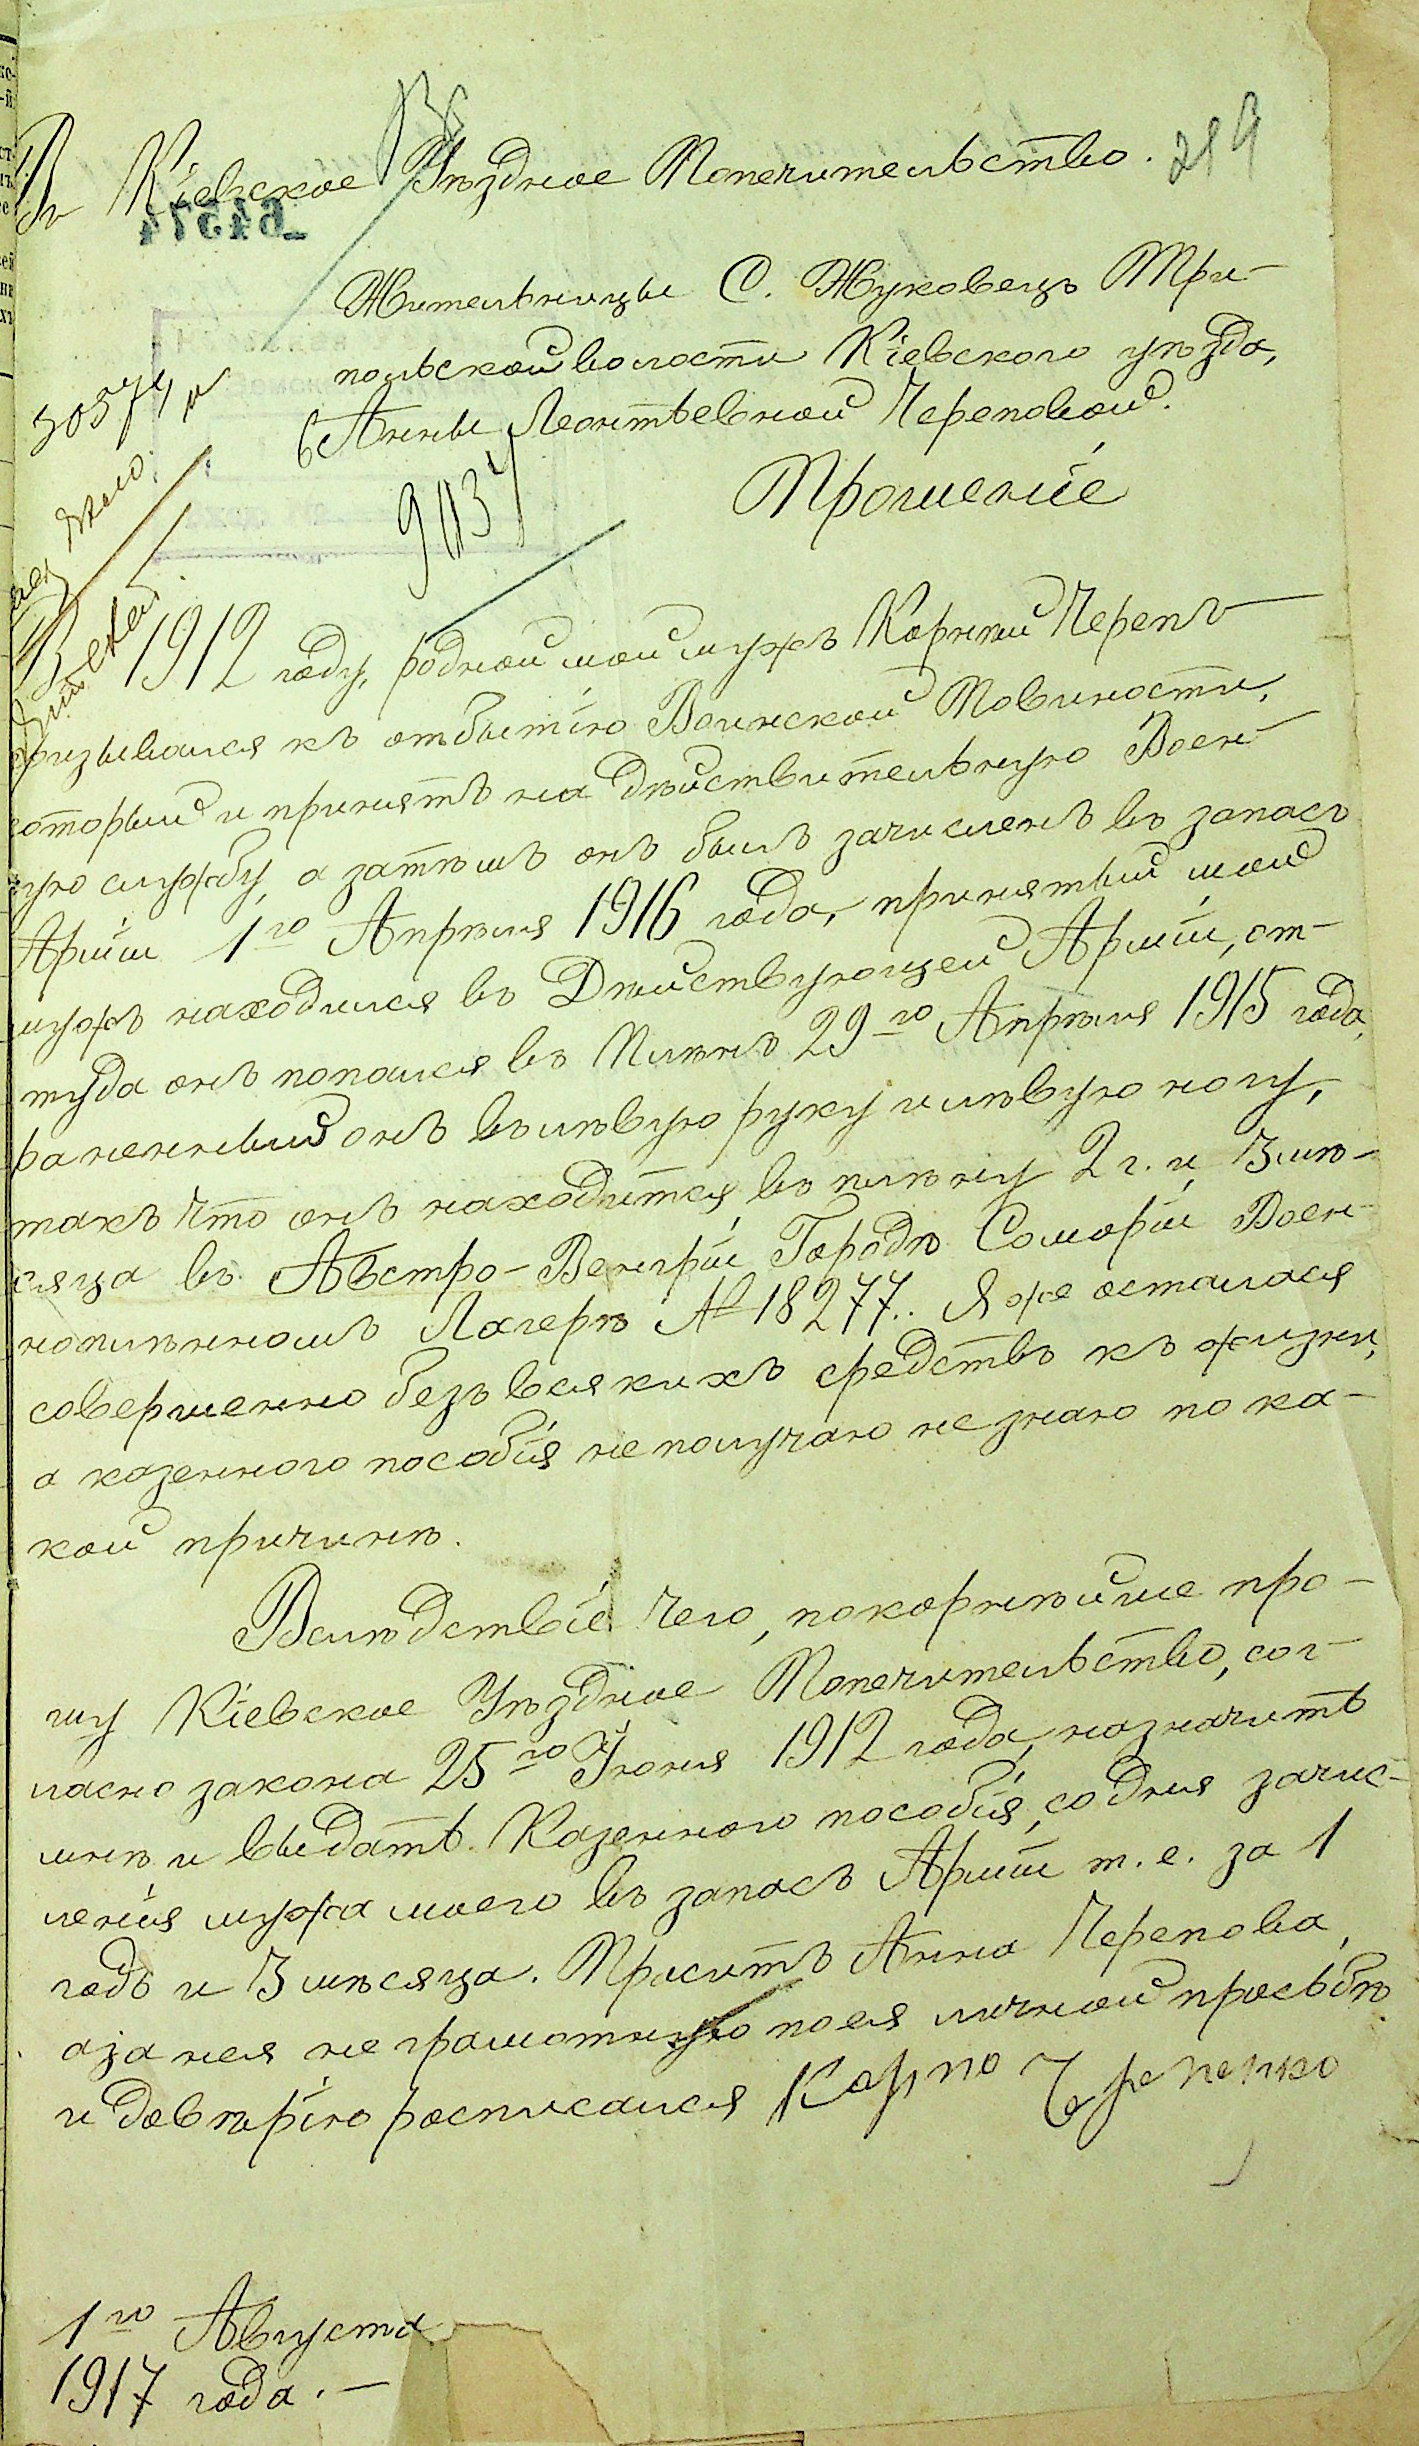 219
Въ Кіевское Уѣздное Попечительство.
64574
Жительницы С. Жуковецъ Три-
польской волости Кіевскаго уѣзда,
Анны Леонтьевной Череповой.
30574
9113
Прошеніе
Въ 1912 году, родной мой мужъ Корнѣй Черепъ
призывался къ отбытію Воинской Повиности,
который и принятъ на дѣйствительную Воен-
ную службу, а затѣмъ онъ былъ зачисленъ въ запасъ
Арміи 1го Апрѣля 1916 года, принятый мой
мужъ находился въ Дѣйствующей Арміи, от-
туда онъ попался въ Плѣнъ 29го Апрѣля 1915 года,
раненный онъ въ лѣвую руку и лѣвую ногу,
такъ что онъ находится въ плѣну 2 г. и 3 мѣ-
сяца въ Австро-Венгріи Городѣ Соморіи Воен-
ноплѣнномъ Лагерѣ № 18277. Я же осталася
совершенно безъ всякихъ средствъ къ жизни,
а казенного пособія не получаю не знаю по ка-
кой причинѣ.
Вслѣдствіе чего, покорнѣйше про-
шу Кіевское Уѣздное Попечительство, сог-
ласно закона 25го Іюня 1912 года, назначить
мнѣ и выдать Казенного пособія, со дня зачис-
ленія мужа моего въ запасъ Арміи т. е. за 1
годъ и 3 мѣсяца. Проситъ Анна Черепова,
а за нея не грамотную по ея личной просьбѣ
и довѣрію росписался Карпо Черепенко
1го Августа
1917 года. —